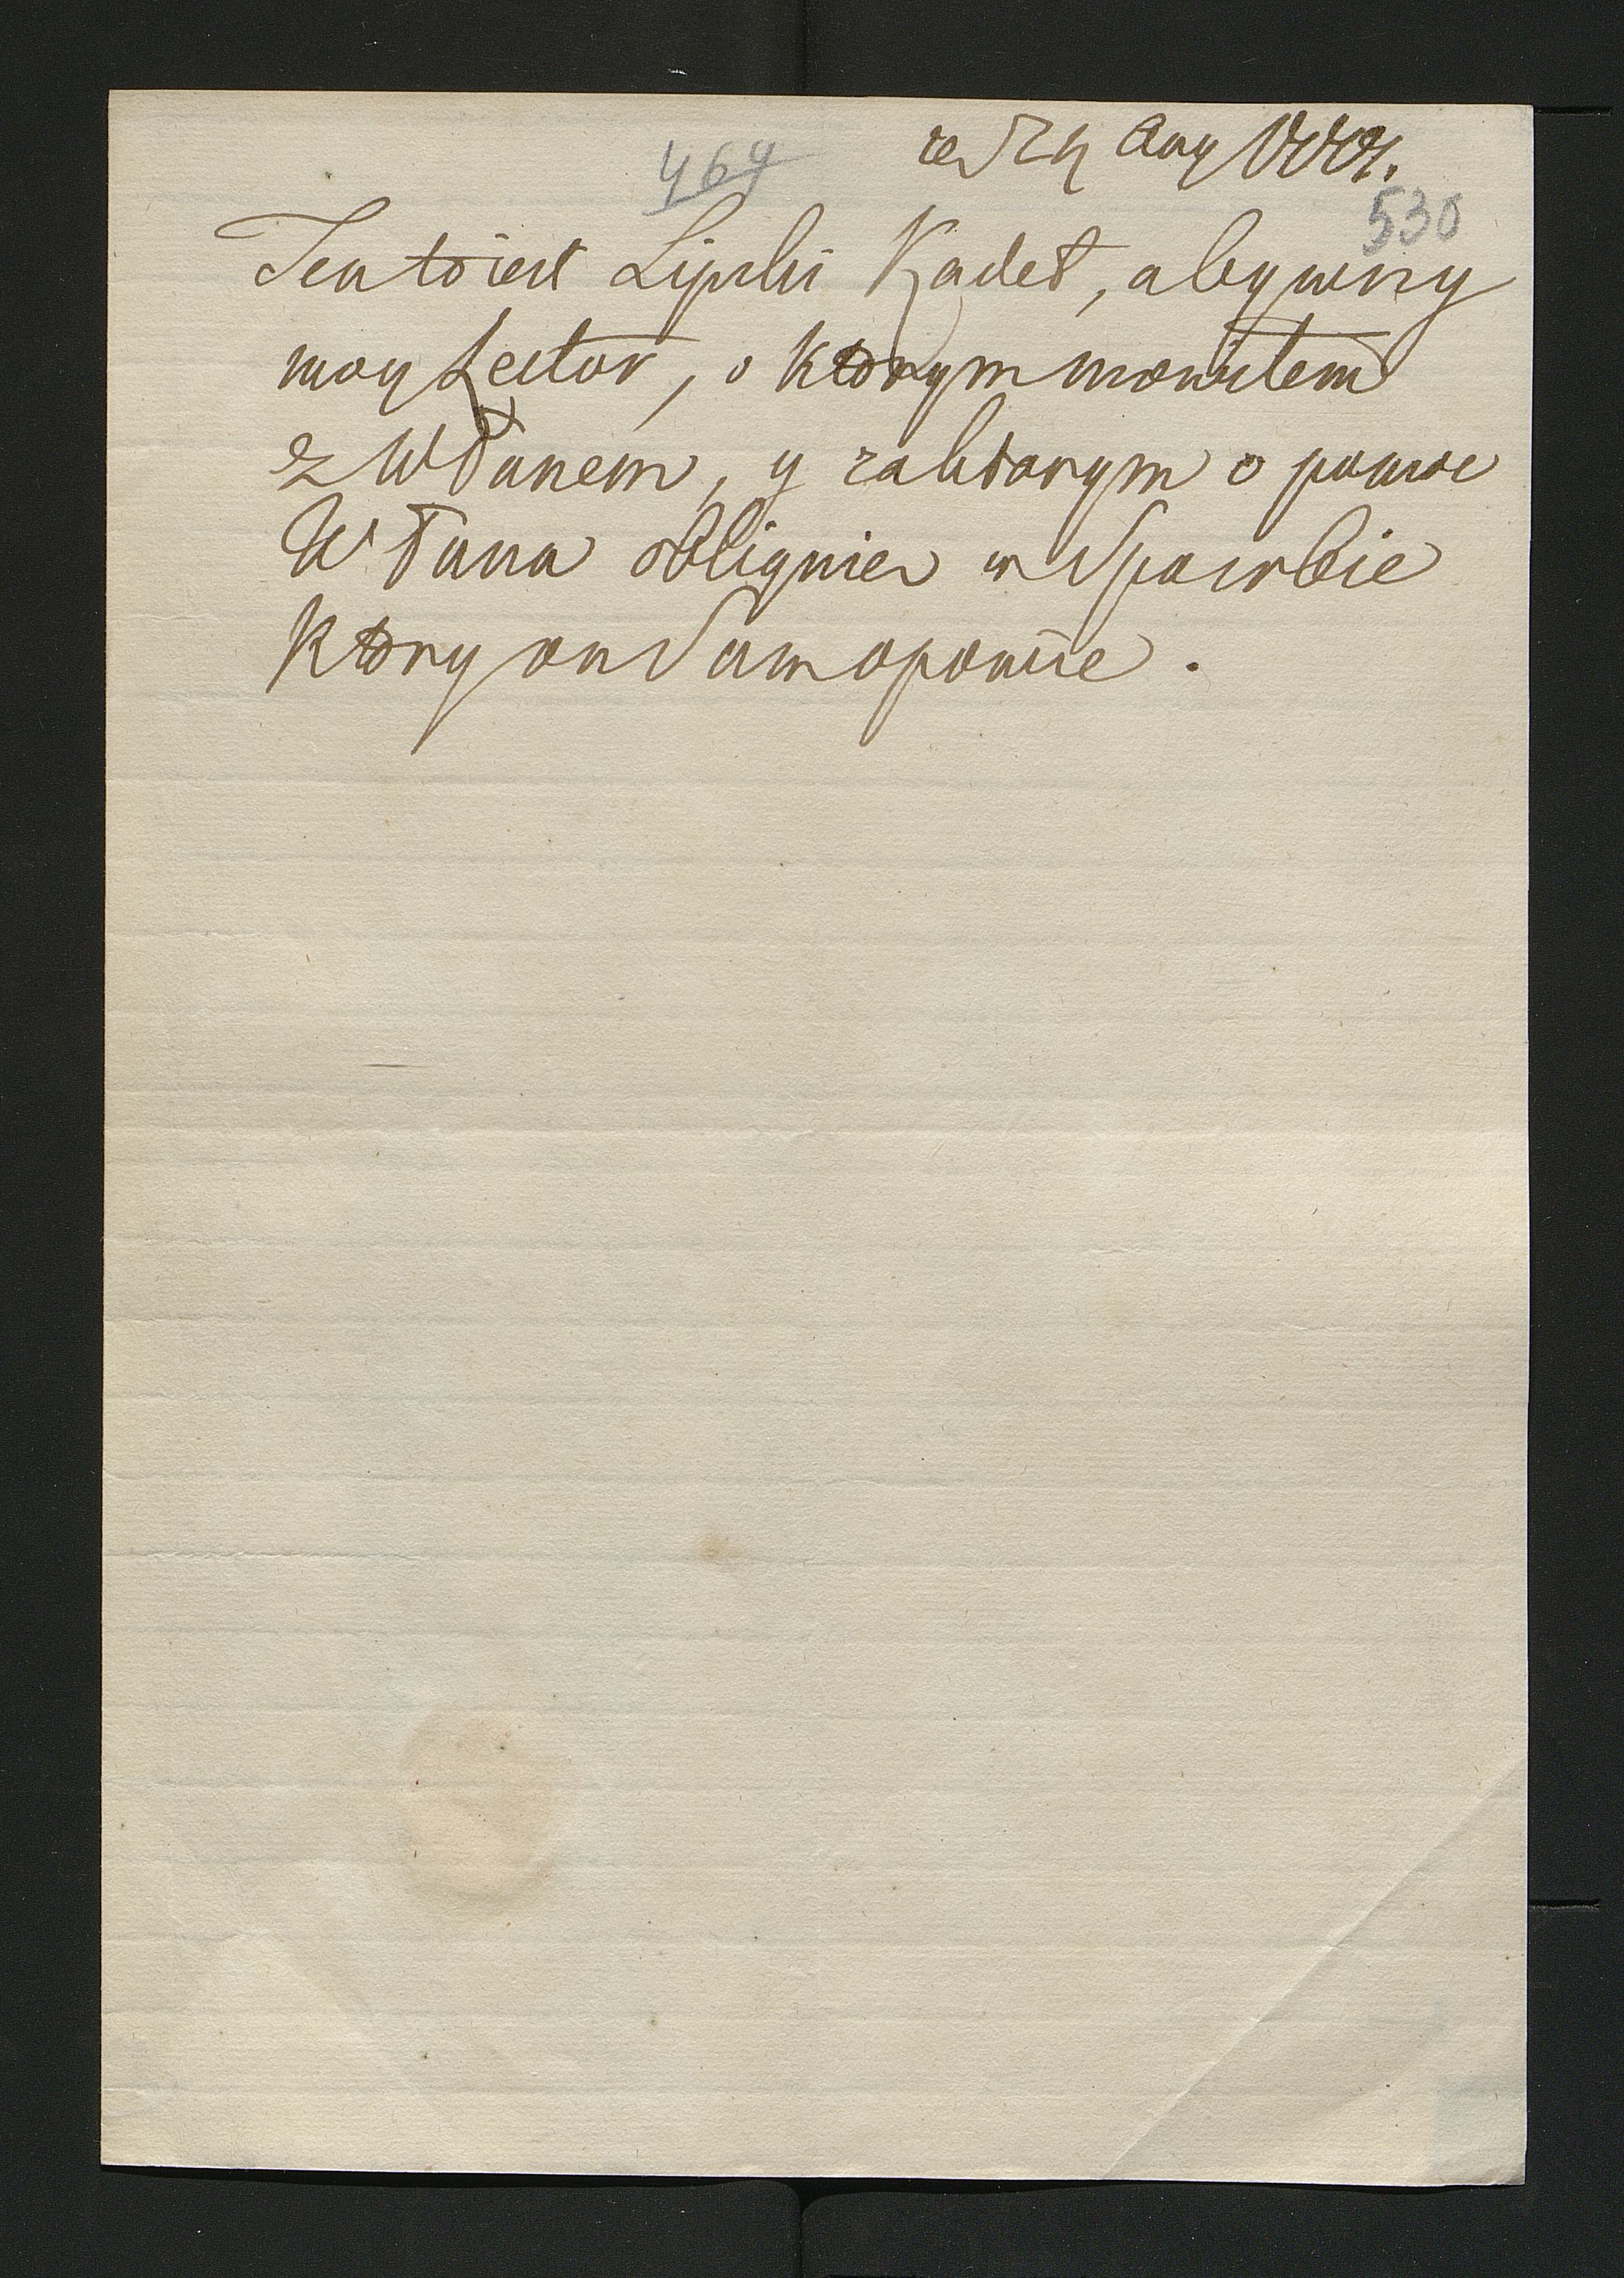 469
24 Aug
530
Ten to iest Lipski Kadet, a bywszy
moy Lector, o ktorym mowiłem
z WPanem, y za ktorym o pomoc
WPana obliguie w Sposobie
ktory on Sam opowie.